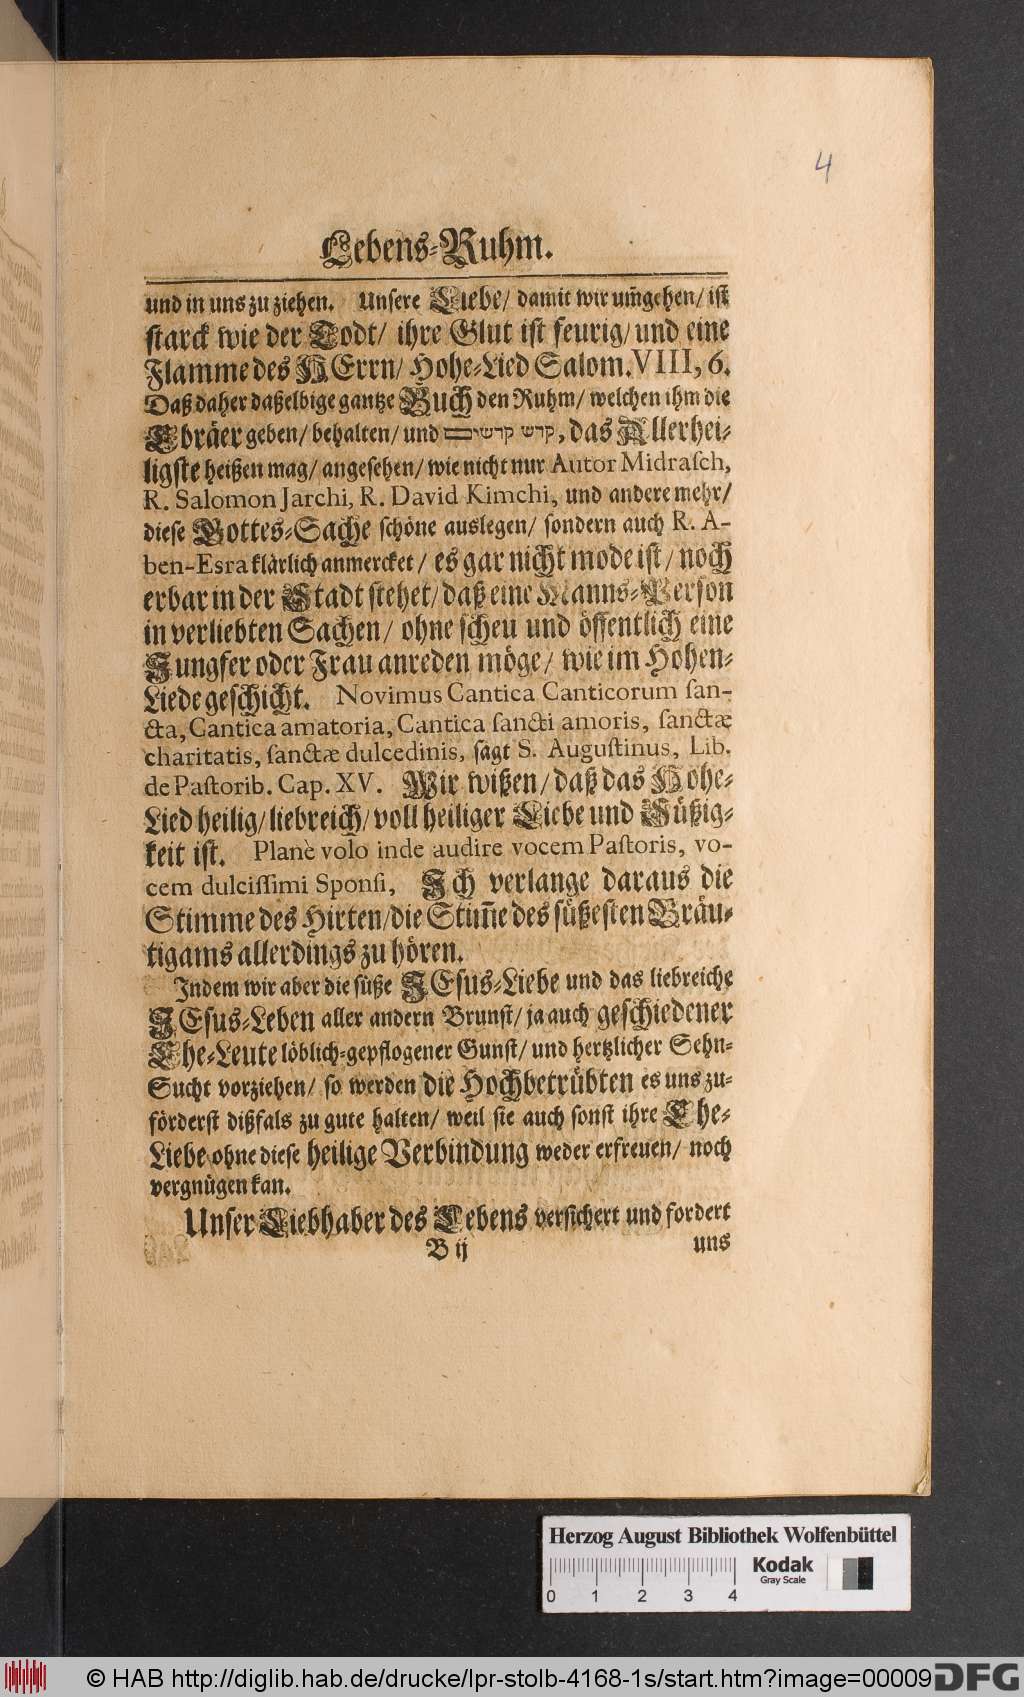 4
Lebens-Ruhm.
und in uns zu ziehen. Unsere Liebe/ damit wir um̃gehen/ ist
starck wie der Todt/ ihre Glut ist feurig/ und eine
Flamme des HErrn/ Hohe-Lied Salom. VIII, 6.
Daß daher daßelbige gantze Buch den Ruhm/ welchen ihm die
Ebräer geben/ behalten/ und קדש קדשים, das Allerhei-
ligste heißen mag/ angesehen/ wie nicht nur Autor Midrasch,
R. Salomon Jarchi, R. David Kimchi, und andere mehr/
diese Gottes-Sache schöne auslegen/ sondern auch R. A-
ben-Esra klärlich anmercket/ es gar nicht mode ist/ noch
erbar in der Stadt stehet/ daß eine Manns-Person
in verliebten Sachen/ ohne scheu und öffentlich eine
Jungfer oder Frau anreden möge/ wie im Hohen-
Liede geschicht. Novimus Cantica Canticorum san-
cta, Cantica amatoria, Cantica sancti amoris, sanctæ
charitatis, sanctæ dulcedinis, sagt S. Augustinus, Lib.
de Pastorib. Cap. XV. Wir wißen/ daß das Hohe-
Lied heilig/ liebreich/ voll heiliger Liebe und Süßig-
keit ist. Planè volo inde audire vocem Pastoris, vo-
cem dulcissimi Sponsi, Ich verlange daraus die
Stimme des Hirten/ die Stim̃e des süßesten Bräu-
tigams allerdings zu hören.
Indem wir aber die süße JEsus-Liebe und das liebreiche
JEsus-Leben aller andern Brunst/ ja auch geschiedener
Ehe-Leute löblich-gepflogener Gunst/ und hertzlicher Sehn-
Sucht vorziehen/ so werden die Hochbetrübten es uns zu-
förderst dißfals zu gute halten/ weil sie auch sonst ihre Ehe-
Liebe ohne diese heilige Verbindung weder erfreuen/ noch
vergnügen kan.
Unser Liebhaber des Lebens versichert und fordert
B ij uns
Herzog August Bibliothek Wolfenbüttel
Kodak
Gray Scale
0 1 2 3 4
© HAB http://diglib.hab.de/drucke/lpr-stolb-4168-1s/start.htm?image=00009
DFG